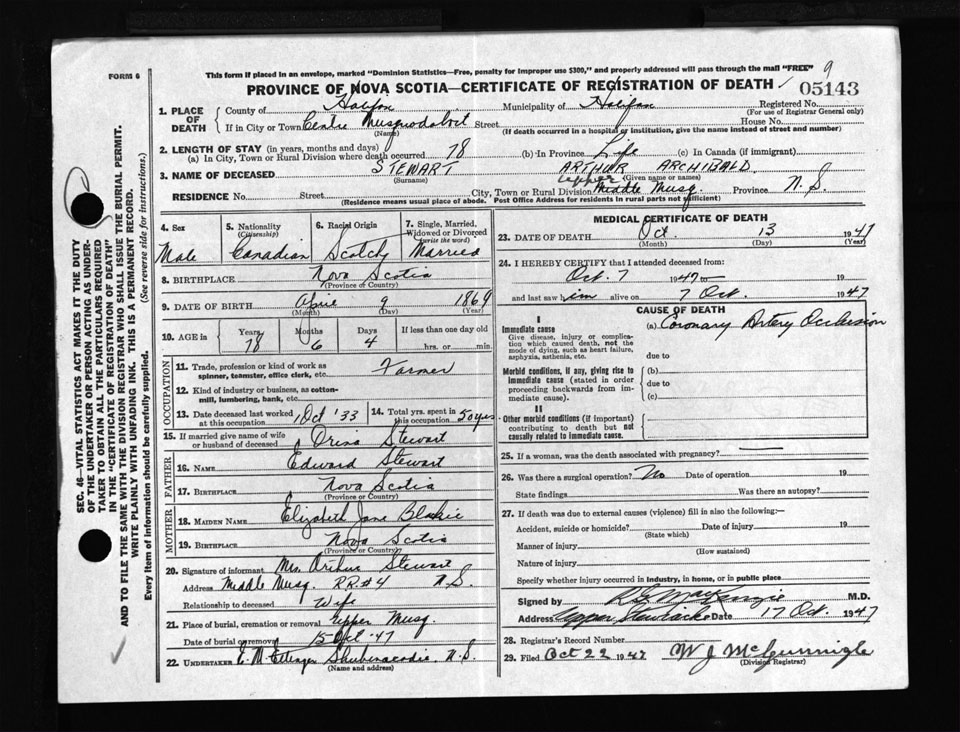 FORM 6
This form if placed in an envelope, marked "Dominion Statistics—Free, penalty for improper use $300," and properly addressed will pass through the mail "FREE"
9
PROVINCE OF NOVA SCOTIA—CERTIFICATE OF REGISTRATION OF DEATH
05143
1. PLACE OF DEATH County of Halifax Municipality of Halifax Registered No. (For use of Registrar General only)
If in City or Town Centre Musquodoboit Street House No.
(Name) (If death occurred in a hospital or institution, give the name instead of street and number)
2. LENGTH OF STAY (in years, months and days)
(a) In City, Town or Rural Division where death occurred 78 (b) In Province Life (c) In Canada (if immigrant)
3. NAME OF DECEASED STEWART ARTHUR ARCHIBALD
(Surname) Upper (Given name or names)
RESIDENCE No. Street City, Town or Rural Division Middle Musq. Province N.S.
(Residence means usual place of abode. Post Office Address for residents in rural parts not sufficient)
4. Sex Male
5. Nationality (Citizenship) Canadian
6. Racial Origin Scotch
7. Single, Married, Widowed or Divorced (write the word) Married
8. BIRTHPLACE Nova Scotia
(Province or Country)
9. DATE OF BIRTH April 9 1869
(Month) (Day) (Year)
10. AGE in Years 78 Months 6 Days 4 If less than one day old hrs. or min.
OCCUPATION
11. Trade, profession or kind of work as spinner, teamster, office clerk, etc. Farmer
12. Kind of industry or business, as cotton-mill, lumbering, bank, etc.
13. Date deceased last worked at this occupation 1 Oct '33
14. Total yrs. spent in this occupation 50 yrs
15. If married give name of wife or husband of deceased Orina Stewart
FATHER
16. NAME Edward Stewart
17. BIRTHPLACE Nova Scotia
(Province or Country)
MOTHER
18. MAIDEN NAME Elizabeth Jane Blakie
19. BIRTHPLACE Nova Scotia
(Province or Country)
20. Signature of informant Mrs. Arthur Stewart
Address Middle Musq. RR.#4 N.S.
Relationship to deceased Wife
21. Place of burial, cremation or removal Upper Musq.
Date of burial or removal 15 Oct '47
22. UNDERTAKER E. M. Ettinger Shubenacadie N.S.
(Name and address)
MEDICAL CERTIFICATE OF DEATH
23. DATE OF DEATH Oct. 13 1947
(Month) (Day) (Year)
24. I HEREBY CERTIFY that I attended deceased from:
Oct. 7 1947 to 19
and last saw him alive on 7 Oct. 1947
CAUSE OF DEATH
I
Immediate cause
Give disease, injury or complication which caused death, not the mode of dying, such as heart failure, asphyxia, asthenia, etc.
(a) Coronary Artery Occlusion
due to
Morbid conditions, if any, giving rise to immediate cause (stated in order proceeding backwards from immediate cause).
(b)
due to
(c)
II
Other morbid conditions (if important) contributing to death but not causally related to immediate cause.
25. If a woman, was the death associated with pregnancy? —
26. Was there a surgical operation? No Date of operation 19
State findings Was there an autopsy?
27. If death was due to external causes (violence) fill in also the following:—
Accident, suicide or homicide? Date of injury 19
(State which)
Manner of injury
(How sustained)
Nature of injury
Specify whether injury occurred in industry, in home, or in public place
Signed by MacKenzie M.D.
Address Upper Stewiacke Date 17 Oct. 1947
28. Registrar's Record Number
29. Filed Oct 22 1947 W J McGunnigle
(Division Registrar)
SEC. 46—VITAL STATISTICS ACT MAKES IT THE DUTY
OF THE UNDERTAKER OR PERSON ACTING AS UNDER-
TAKER TO OBTAIN ALL THE PARTICULARS REQUIRED
IN THE "CERTIFICATE OF REGISTRATION OF DEATH"
AND TO FILE THE SAME WITH THE DIVISION REGISTRAR WHO SHALL ISSUE THE BURIAL PERMIT.
WRITE PLAINLY WITH UNFADING INK. THIS IS A PERMANENT RECORD.
Every item of information should be carefully supplied. (See reverse side for instructions.)